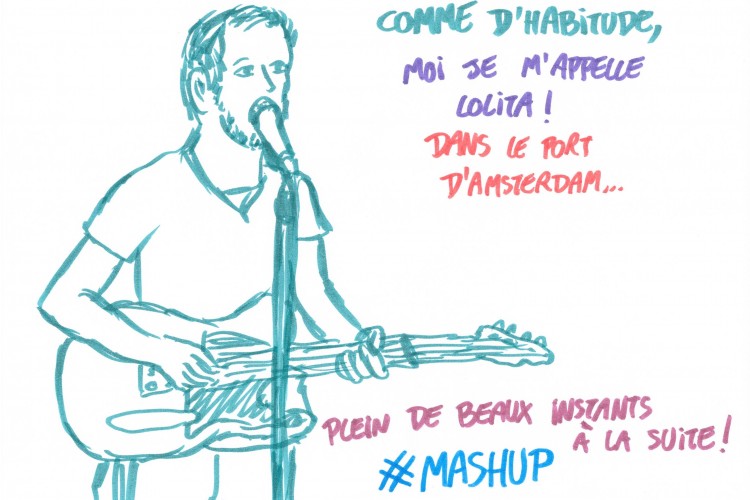 COMME D'HABITUDE,
MOI JE M'APPELLE
LOLITA !
DANS LE PORT
D'AMSTERDAM...
PLEIN DE BEAUX INSTANTS
À LA SUITE !
#MASHUP